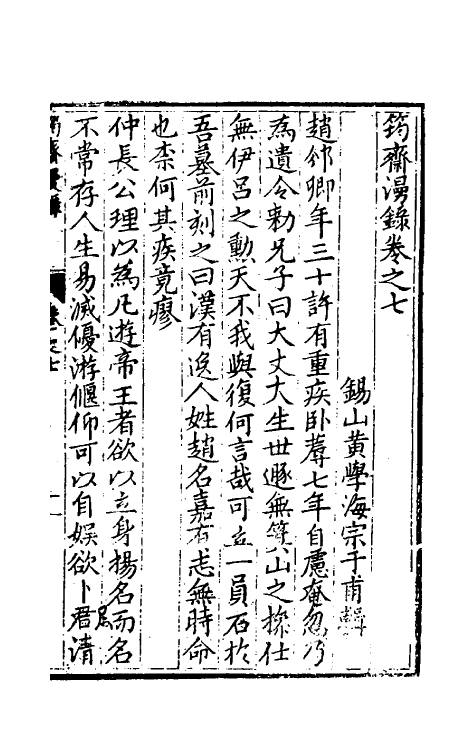 筠齋漫錄卷之七
錫山黃學海宗于甫輯
趙邠卿年三十許有重疾卧蓐七年自慮奄忽乃
為遺令勅兄子曰大丈夫生世遯無箕山之操仕
無伊呂之勳天不我與復何言哉可立一員石於
吾墓前刻之曰漢有逸人姓趙名嘉有志無時命
也柰何其疾竟瘳
仲長公理以為凡遊帝王者欲以立身揚名而名
不常存人生易滅優游偃仰可以自娛欲卜居清
筠齋漫錄 卷之七 一